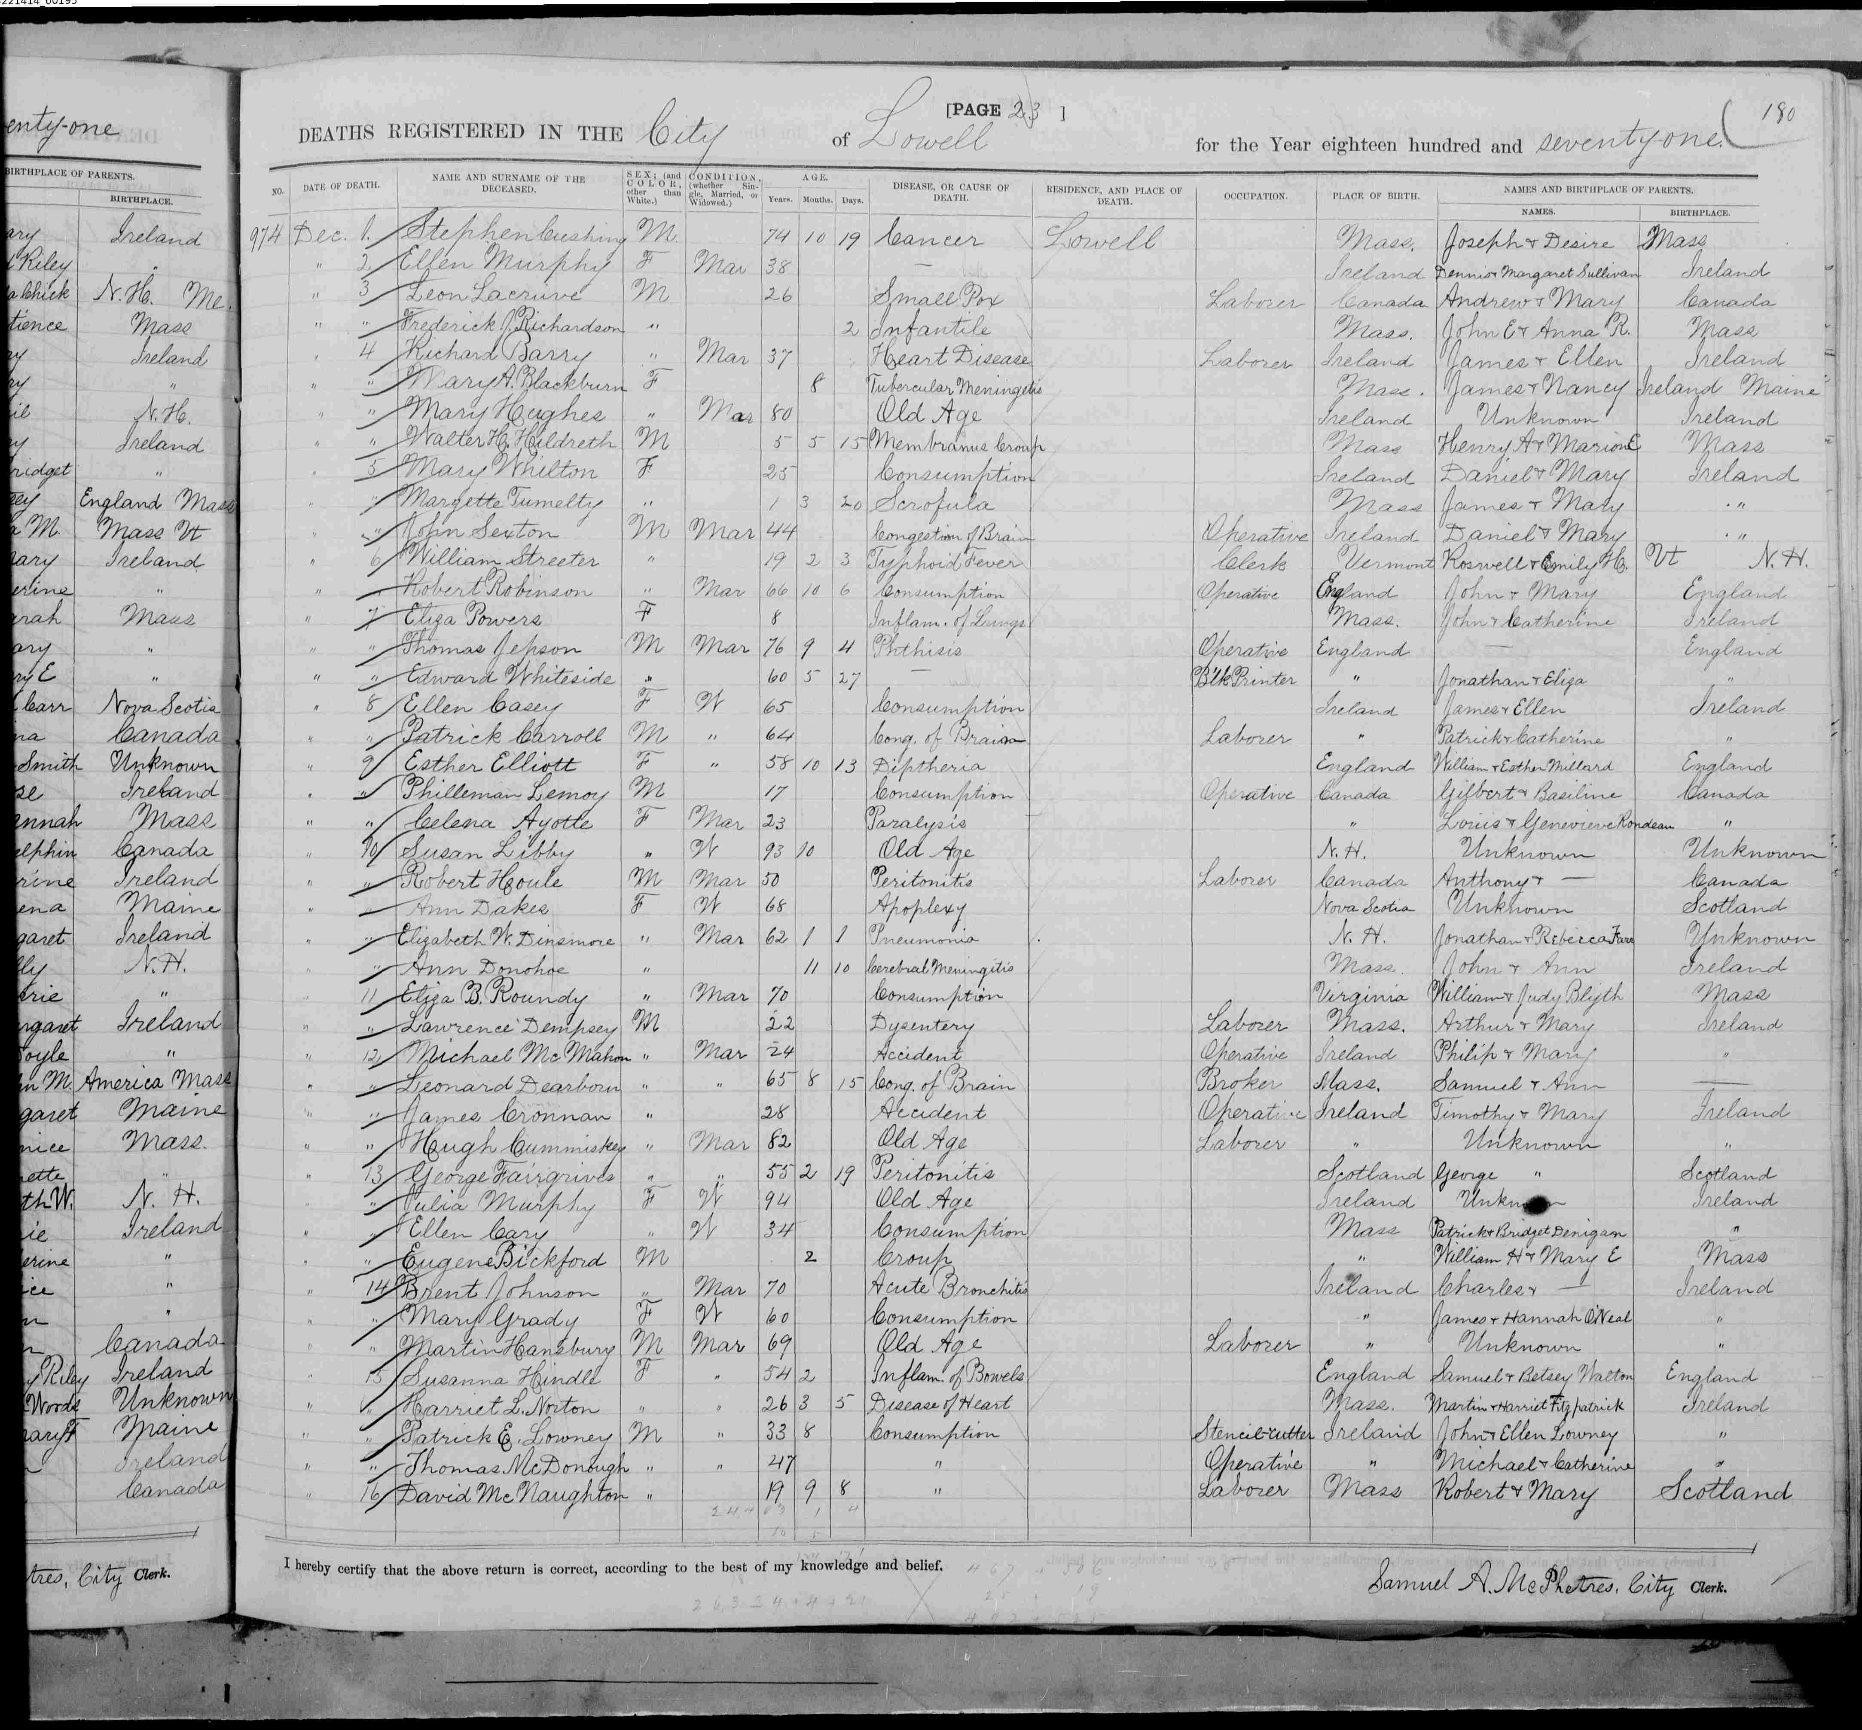 221414_00195
enty-one
BIRTHPLACE OF PARENTS.
BIRTHPLACE.
ary Ireland
Riley "
Chick N.H. Me.
tience Mass
ry Ireland
ry "
il N.H.
ry Ireland
ridget "
ey England Mass
a M. Mass Vt
ary Ireland
erine "
arah Mass
ary "
ry E "
Carr Nova Scotia
na Canada
Smith Unknown
se Ireland
annah Mass
elphin Canada
rine Ireland
ena Maine
garet Ireland
lly N.H.
erie "
rgaret Ireland
oyle "
n M. America Mass
garet Maine
nice Mass.
nette "
th W. N. H.
ie Ireland
erine "
ice "
n "
n Canada
y Riley Ireland
Woods Unknown
ary F Maine
Ireland
Canada
tres, City Clerk.
[PAGE 23 ]
180
DEATHS REGISTERED IN THE City of Lowell for the Year eighteen hundred and seventy-one.
NO. DATE OF DEATH. NAME AND SURNAME OF THE DECEASED. SEX; (and COLOR, other than White.) CONDITION, (whether Single, Married, or Widowed.) AGE. Years. Months. Days. DISEASE, OR CAUSE OF DEATH. RESIDENCE, AND PLACE OF DEATH. OCCUPATION. PLACE OF BIRTH. NAMES AND BIRTHPLACE OF PARENTS. NAMES. BIRTHPLACE.
974 Dec. 1. Stephen Cushing M. 74 10 19 Cancer Lowell Mass. Joseph & Desire Mass
" 2 Ellen Murphy F Mar 38 — Ireland Dennis & Margaret Sullivan Ireland
" 3 Leon Lacruve M 26 Small Pox Laborer Canada Andrew & Mary Canada
" " Frederick J. Richardson " 2 Infantile Mass. John E & Anna R. Mass
" 4 Richard Barry " Mar 37 Heart Disease Laborer Ireland James & Ellen Ireland
" " Mary A. Blackburn F 8 Tubercular Meningetis Mass. James & Nancy Ireland Maine
" " Mary Hughes " Mar 80 Old Age Ireland Unknown Ireland
" " Walter H. Hildreth M 5 5 15 Membranus Croup Mass Henry A & Marion E Mass
" 5 Mary Whilton F 25 Consumption Ireland Daniel & Mary Ireland
" " Margette Tumelty " 1 3 20 Scrofula Mass James & Mary "
" " John Sexton M Mar 44 Congestion of Brain Operative Ireland Daniel & Mary "
" 6 William Streeter " 19 2 3 Typhoid Fever Clerk Vermont Roswell & Emily H. Vt N. H.
" " Robert Robinson " Mar 66 10 6 Consumption Operative England John & Mary England
" 7 Eliza Powers F 8 Inflam. of Lungs Mass. John & Catherine Ireland
" " Thomas Jepson M Mar 76 9 4 Phthisis Operative England — England
" " Edward Whiteside " 60 5 27 — Blk Printer " Jonathan & Eliza "
" 8 Ellen Casey F W 65 Consumption Ireland James & Ellen Ireland
" " Patrick Carroll M " 64 Cong. of Brain Laborer " Patrick & Catherine "
" 9 Esther Elliott F " 58 10 13 Diptheria England William & Esther Millard England
" " Philleman Lemoy M 17 Consumption Operative Canada Gilbert & Basiline Canada
" " Celena Ayotte F Mar 23 Paralysis " Louis & Genevieve Rondeau "
" 10 Susan Libby " W 93 10 Old Age N.H. Unknown Unknown
" " Robert Houle M Mar 50 Peritonitis Laborer Canada Anthony & — Canada
" " Ann Dakes F W 68 Apoplexy Nova Scotia Unknown Scotland
" " Elizabeth W. Dinsmore " Mar 62 1 1 Pneumonia N. H. Jonathan & Rebecca Farr Unknown
" " Ann Donohoe " 11 10 Cerebral Meningitis Mass. John & Ann Ireland
" 11 Eliza B. Roundy " Mar 70 Consumption Virginia William & Judy Blyth Mass
" " Lawrence Dempsey M 22 Dysentery Laborer Mass. Arthur & Mary Ireland
" 12 Michael McMahon " Mar 24 Accident Operative Ireland Philip & Mary "
" " Leonard Dearborn " " 65 8 15 Cong. of Brain Broker Mass. Samuel & Ann —
" " James Cronnan " 28 Accident Operative Ireland Timothy & Mary Ireland
" " Hugh Cummiskey " Mar 82 Old Age Laborer " Unknown "
" 13 George Fairgrives " " 55 2 19 Peritonitis Scotland George " Scotland
" " Julia Murphy F W 94 Old Age Ireland Unknown Ireland
" " Ellen Cary " W 34 Consumption Mass Patrick & Bridget Denigan "
" " Eugene Bickford M 2 Croup " William H & Mary E Mass
" 14 Brent Johnson " Mar 70 Acute Bronchitis Ireland Charles & — Ireland
" " Mary Grady F W 60 Consumption " James & Hannah O'Neal "
" " Martin Hansbury M Mar 69 Old Age Laborer " Unknown "
" 15 Susanna Hindle F " 54 2 Inflam. of Bowels England Samuel & Betsey Walton England
" " Harriet L. Norton " " 26 3 5 Disease of Heart Mass. Martin & Harriet Fitzpatrick Ireland
" " Patrick E. Lowney M " 33 8 Consumption Stencil-cutter Ireland John & Ellen Lowney "
" " Thomas McDonough " " 47 " Operative " Michael & Catherine "
" 16 David McNaughton " 19 9 8 " Laborer Mass Robert & Mary Scotland
I hereby certify that the above return is correct, according to the best of my knowledge and belief.
Samuel A. McPhetres, City Clerk.